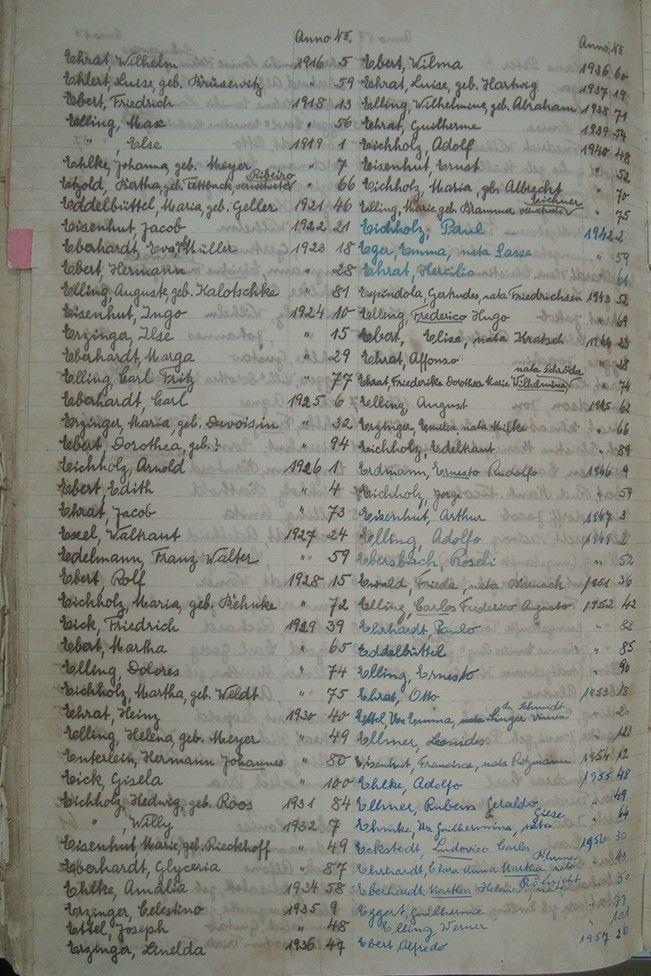 Anno No.
Ehrat, Wilhelm 1916 5
Ehlert, Luise, geb. Brüsewitz " 59
Ebert, Friedrich 1918 13
Elling, Max " 56
" , Else 1919 1
Ehlke, Johanna geb. Meyer " 7
Etzold, Bertha, geb. verwitwete Ribeiro " 66
Eddelbüttel, Maria, geb. Geller 1921 46
Eisenhut, Jacob 1922 21
Eberhardt Eva Müller 1923 18
Ebert Hermann " 28
Elling, Auguste, geb. Kalotschke " 81
Eisenhut, Ingo 1924 10
Erzinger, Ilse " 15
Eberhardt, Marga " 29
Elling, Carl Fritz " 77
Eberhardt, Carl 1925 6
Erzinger, Maria, geb. Duvoisin " 32
Ebert Dorothea, geb. ? " 94
Eichholz, Arnold 1926 1
Ebert Edith " 4
Ehrat, Jacob " 73
Exel, Waltraut 1927 24
Edelmann, Franz Walter " 59
Ebert Rolf 1928 15
Eichholz, Maria, geb. Behnke " 72
Eick, Friedrich 1929 39
Ebert, Martha " 65
Elling, Dolores " 74
Eichholz, Martha, geb. Weldt " 75
Ehrat, Heinz 1930 40
Elling, Helena, geb. Meyer " 49
Enterlein, Hermann Johannes " 80
Eick, Gisela " 100
Eichholz, Hedwig, geb. Roos 1931 84
" , Willy 1932 7
Eisenhut, Marie, geb. Rieckhoff " 49
Eberhardt, Glyceria " 87
Ehlke, Amalia 1934 58
Erzinger, Celestino 1935 9
Ettel, Joseph " 48
Erzinger, Linelda 1936 47
Anno No
Ebert, Wilma 1936 60
Ehrat, Luise, geb. Hartwig 1937 19
Elling, Wilhelmine, geb. Abraham 1938 71
Ehrat, Guilherme 1939 54
Eichholz, Adolf 1940 48
Eisenhut, Ernst " 52
Eichholz, Maria, geb. Albrecht " 70
Elling, Marie geb. Brammer verwitwete Eichner " 75
Eichholz, Paul 1942 2
Eger, Emma, nata Sasse " 59
Ehrat, Hercilio " 61
Espindola Gertrudes, nata Friedrichsen 1943 52
Elling, Frederico Hugo " 69
Ebert, Elise, nata Kratsch 1944 23
Ehrat, Affonso " 28
Ehrat, Friederike Dorothea Marie Wilhelmine nata Schröda " 74
Elling, August 1945 62
Erzinger, Emilia nata Milke " 66
Eichholz, Edeltraut " 89
Erdmann, Ernesto Rudolfo 1946 9
Eichholz, Jorge " 59
Eisenhut, Arthur 1947 3
Elling, Adolfo 1949 2
Ebersbach, Roseli " 52
Ewald, Frieda, nata 1951 36
Elling, Carlos Frederico Augusto 1952 42
Ehrhardt, Paulo " 82
Eddelbüttel " 85
Elling, Ernesto " 90
Ehrat, Otto 1953 18
Ettel, Emma, nata Singer Viuva de Schmidt " 20
Ellmer, Leonidio " 123
Eisenhut, Francisca, nata 1954 12
Ehlke, Adolfo 1955 48
Ellmer, Rubens Geraldo " 49
Ehmke, Guilhermina, nata Giese " 64
Eckstedt, Ludovico Carlos 1956 30
Ehrhardt, Clara Anna Martha nata " 43
Eberhardt Martha Helena, nata " 50
Eggert, Guilherme " 77
Elling Werner " 101
Ebert Alfredo 1957 26